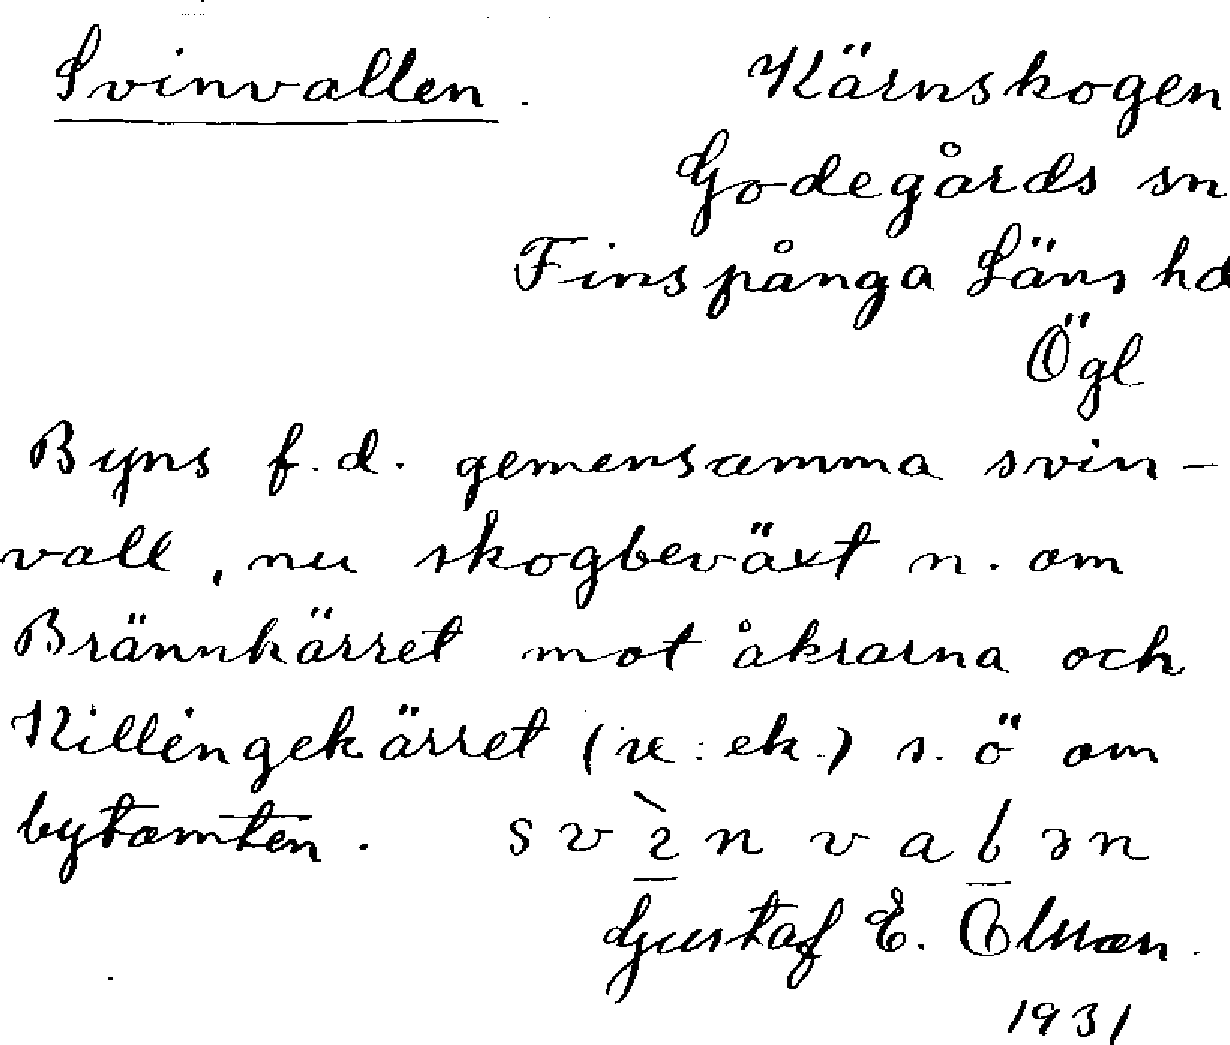 Svinvallen. Kärnskogen
Godegårds sn
Finspånga Läns hd
Ögl
Byns f.d. gemensamma svin-
vall, nu skogbeväxt n. om
Brännkärret mot åkrarna och
Killingekärret (se: ek.) s. ö om
bytomten.
Gustaf E. Olsson.
1931